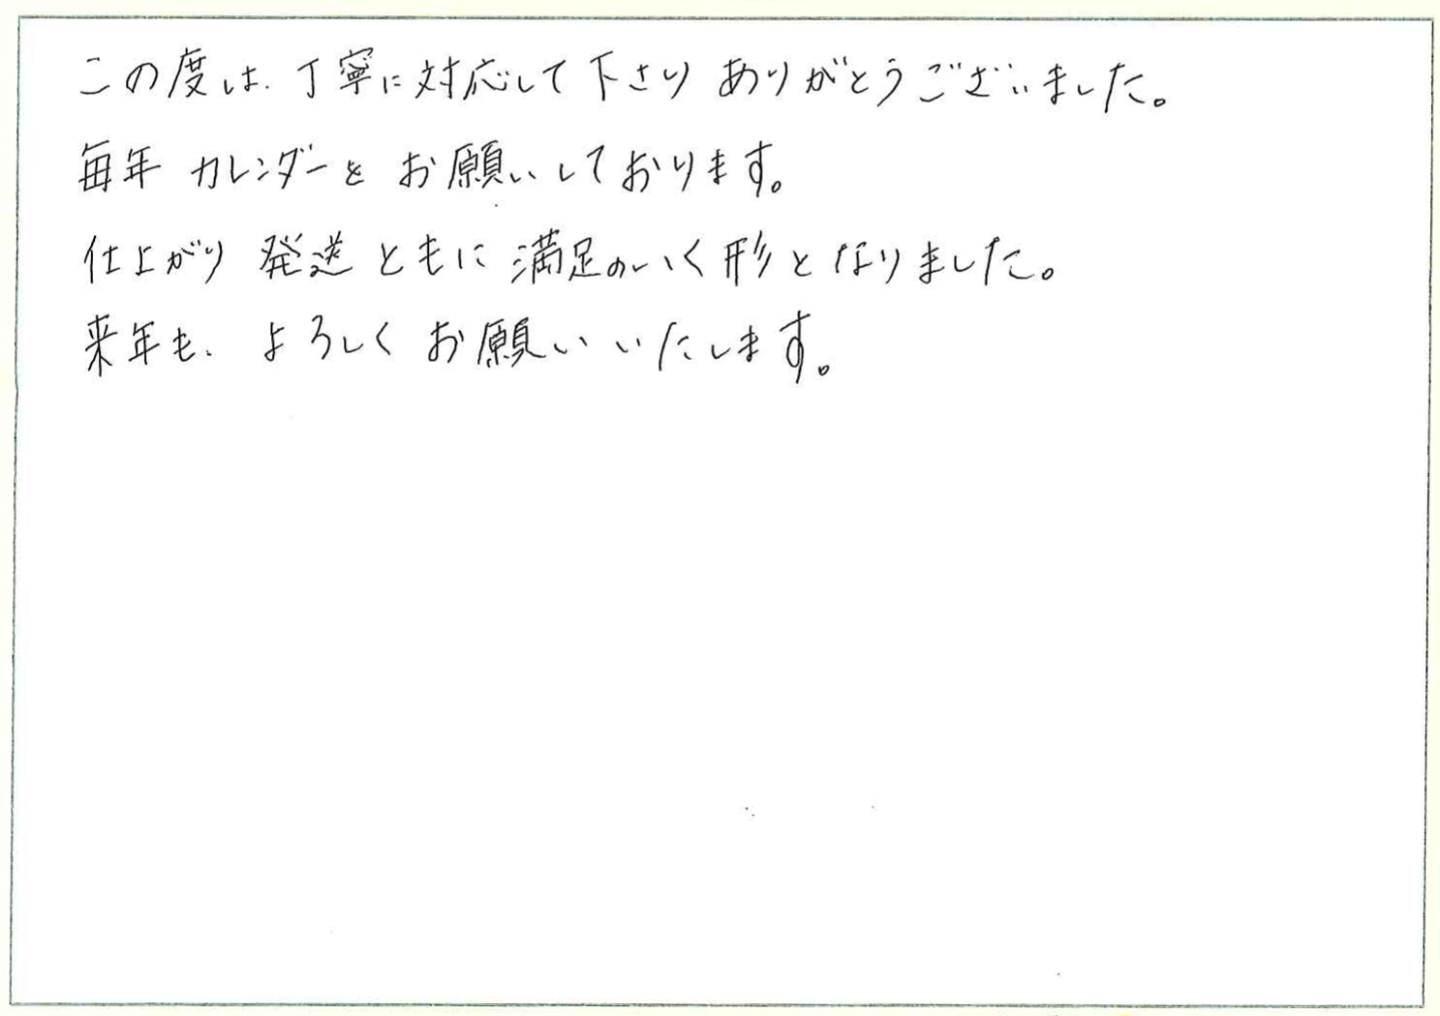 この度は、丁寧に対応して下さり ありがとうございました。
毎年 カレンダーを お願いしております。
仕上がり 発送 ともに 満足のいく 形となりました。
来年も、よろしく お願いいたします。